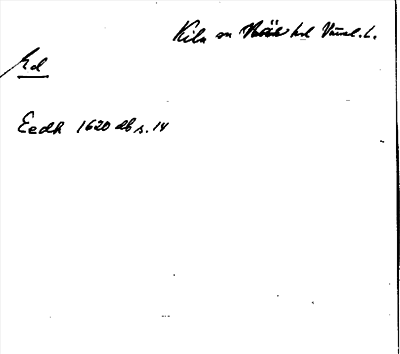 Kila sn Näs hd Värml. l.
Ed
Eedh 1620 db s. 14